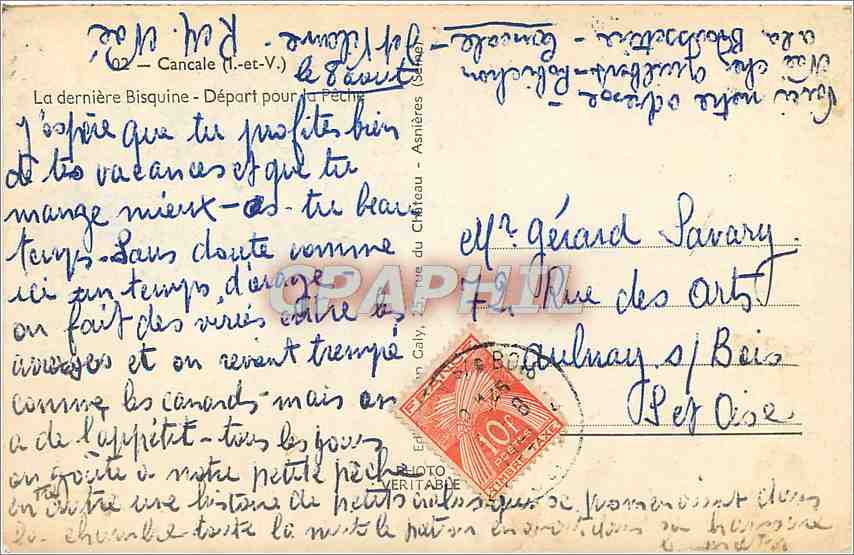 02 — Cancale (I.-et-V.)
le 8 août
La dernière Bisquine - Départ pour la Pêche
J'espère que tu profites bien
de tes vacances et que tu
mange mieux - as-tu beau
temps. Sans doute comme
ici un temps d'orage -
on fait des virées entre les
averses et on revient trempé
comme les canards - mais on
a de l'appétit - tous les jours
on goûte à notre petite pêche
en outre une histoire de petits qui se promenaient dans
la chambre toute la nuit le patron dans sa
Voici notre adresse -
Noé chez Guilbert-Robichon
à la Broussetière - Cancale -
Ille et Vilaine - R et M. Noé
Mr. Gérard Savary
72 Rue des Arts
Aulnay s/ Bois
S et Oise
Caly, rue du Château - Asnières (Seine)
PHOTO
VERITABLE
10F
TIMBRE TAXE
CPAPHIL